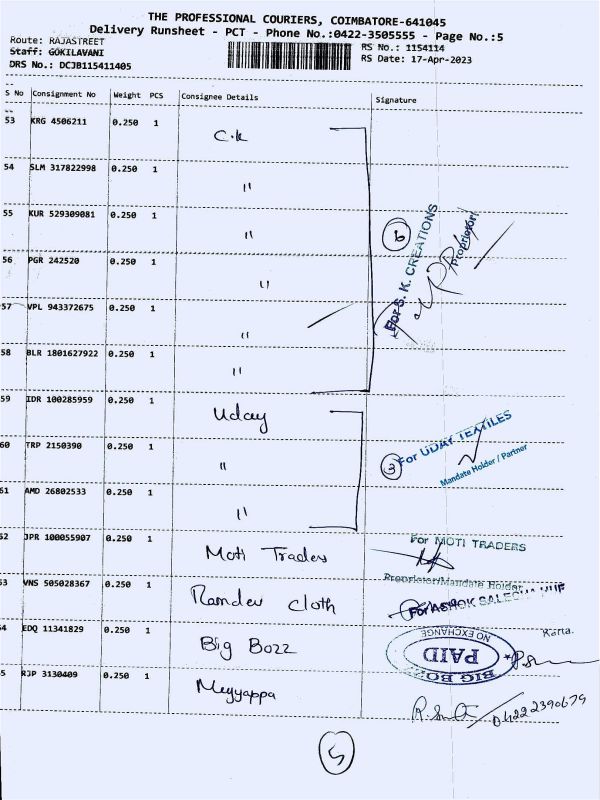 THE PROFESSIONAL COURIERS, COIMBATORE-641045
Delivery Runsheet - PCT - Phone No.:0422-3505555 - Page No.:5
Route: RAJASTREET
RS No.: 1154114
Staff: GOKILAVANI
RS Date: 17-Apr-2023
DRS No.: DCJB115411405
S No Consignment No Weight PCS Consignee Details Signature
53 KRG 4506211 0.250 1 C.K
54 SLM 317822998 0.250 1 "
55 KUR 529309081 0.250 1 "
56 PGR 242520 0.250 1 "
57 VPL 943372675 0.250 1 "
58 BLR 1801627922 0.250 1 "
6
For S. K. CREATIONS
Proprietor
59 IDR 100285959 0.250 1 Uday
60 TRP 2150390 0.250 1 "
61 AMD 26802533 0.250 1 "
3
For UDAY TEXTILES
Mandate Holder / Partner
62 JPR 100055907 0.250 1 Moti Traders
For MOTI TRADERS
Proprietor/Mandate Holder
63 VNS 505028367 0.250 1 Ramdev Cloth
For ASHOK SALECHA HUF
Karta.
64 EDQ 11341829 0.250 1 Big Bozz
NO EXCHANGE
PAID
BIG BO
65 RJP 3130409 0.250 1 Meyyappa
0422 2390679
5